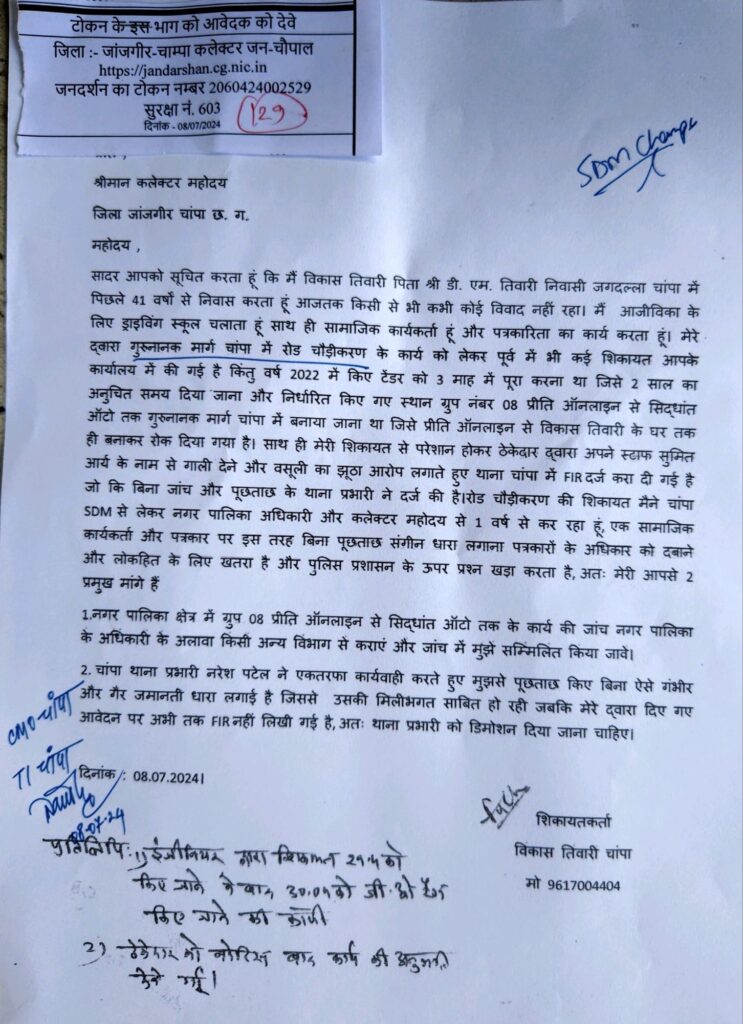 टोकन के इस भाग को आवेदक को देवे
जिला :- जांजगीर-चाम्पा कलेक्टर जन-चौपाल
https://jandarshan.cg.nic.in
जनदर्शन का टोकन नम्बर 2060424002529
सुरक्षा नं. 603
129
दिनांक - 08/07/2024
SDM Champa
श्रीमान कलेक्टर महोदय
जिला जांजगीर चांपा छ. ग.
महोदय ,
सादर आपको सूचित करता हूं कि मैं विकास तिवारी पिता श्री डी. एम. तिवारी निवासी जगदल्ला चांपा में
पिछले 41 वर्षो से निवास करता हूं आजतक किसी से भी कभी कोई विवाद नहीं रहा। मैं आजीविका के
लिए ड्राइविंग स्कूल चलाता हूं साथ ही सामाजिक कार्यकर्ता हूं और पत्रकारिता का कार्य करता हूं। मेरे
द्वारा गुरुनानक मार्ग चांपा में रोड चौड़ीकरण के कार्य को लेकर पूर्व में भी कई शिकायत आपके
कार्यालय में की गई है किंतु वर्ष 2022 में किए टेंडर को 3 माह में पूरा करना था जिसे 2 साल का
अनुचित समय दिया जाना और निर्धारित किए गए स्थान ग्रुप नंबर 08 प्रीति ऑनलाइन से सिद्धांत
ऑटो तक गुरुनानक मार्ग चांपा में बनाया जाना था जिसे प्रीति ऑनलाइन से विकास तिवारी के घर तक
ही बनाकर रोक दिया गया है। साथ ही मेरी शिकायत से परेशान होकर ठेकेदार द्वारा अपने स्टाफ सुमित
आर्य के नाम से गाली देने और वसूली का झूठा आरोप लगाते हुए थाना चांपा में FIR दर्ज करा दी गई है
जो कि बिना जांच और पूछताछ के थाना प्रभारी ने दर्ज की है।रोड चौड़ीकरण की शिकायत मैने चांपा
SDM से लेकर नगर पालिका अधिकारी और कलेक्टर महोदय से 1 वर्ष से कर रहा हूं, एक सामाजिक
कार्यकर्ता और पत्रकार पर इस तरह बिना पूछताछ संगीन धारा लगाना पत्रकारों के अधिकार को दबाने
और लोकहित के लिए खतरा है और पुलिस प्रशासन के ऊपर प्रश्न खड़ा करता है, अतः मेरी आपसे 2
प्रमुख मांगे हैं
1.नगर पालिका क्षेत्र में ग्रुप 08 प्रीति ऑनलाइन से सिद्धांत ऑटो तक के कार्य की जांच नगर पालिका
के अधिकारी के अलावा किसी अन्य विभाग से कराएं और जांच में मुझे सम्मिलित किया जावे।
2. चांपा थाना प्रभारी नरेश पटेल ने एकतरफा कार्यवाही करते हुए मुझसे पूछताछ किए बिना ऐसे गंभीर
और गैर जमानती धारा लगाई है जिससे उसकी मिलीभगत साबित हो रही जबकि मेरे द्वारा दिए गए
आवेदन पर अभी तक FIR नहीं लिखी गई है, अतः थाना प्रभारी को डिमोशन दिया जाना चाहिए।
CMO चांपा
TI चांपा
08-07-24
दिनांक : 08.07.2024।
शिकायतकर्ता
विकास तिवारी चांपा
मो 9617004404
प्रतिलिपि:- 1) इंजीनियर द्वारा शिकायत 29.4 को
किए जाने के बाद 30.04 को जी.ओ टैग
किए जाने की कॉपी
2) ठेकेदार को नोटिस बाद कार्य की अनुमति
देने गई।